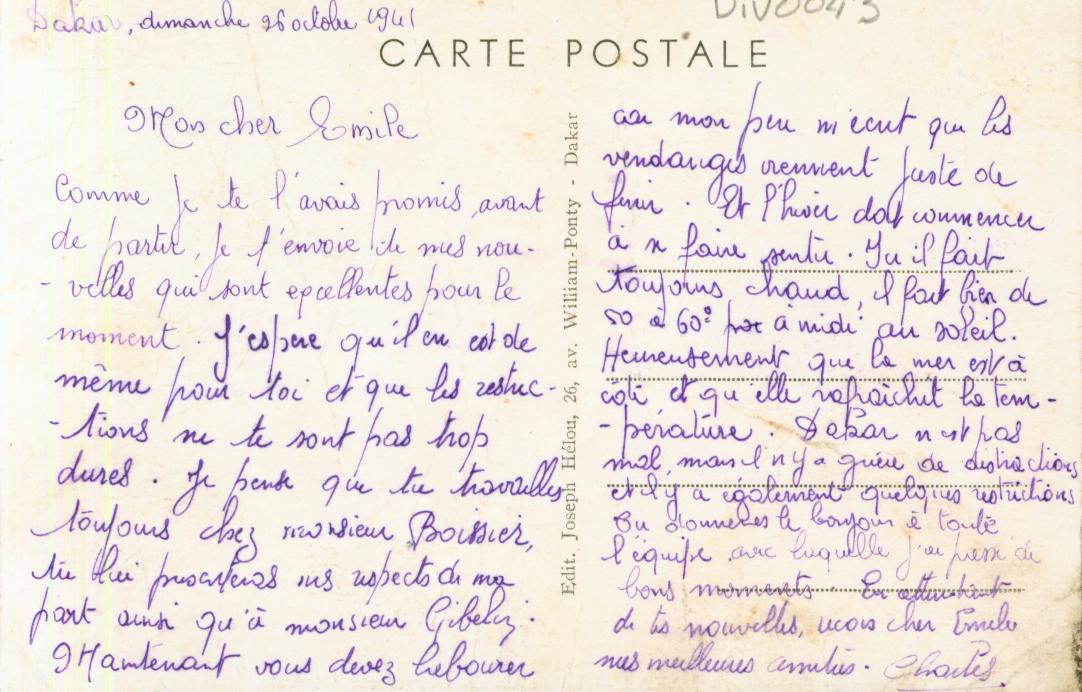 Dakar, dimanche 26 octobre 1941
DIV0043
CARTE POSTALE
Mon cher Emile
Comme je te l'avais promis avant
de partir, je t'envoie de mes nou-
- velles qui sont excellentes pour le
moment. J'espere qu'il en est de
même pour toi et que les restric-
- tions ne te sont pas trop
dures. Je pense que tu travailles
toujours chez monsieur Boissier,
tu lui presenteras mes respects de ma
part ainsi qu'à monsieur Gibelin.
Maintenant vous devez labourer
Edit. Joseph Hélou, 26, av. William-Ponty - Dakar
car mon m'ecrit que les
vendanges viennent juste de
finir. Et l'hiver doit commencer
à se faire sentir. Ici il fait
toujours chaud, il fait bien de
50 à 60° à midi au soleil.
Heureusement que la mer est à
côté et qu'elle rafraichit la tem-
- pérature. Dakar n'est pas
mal, mais il n'y a guère de distractions
et il y a également quelques restrictions
Tu donneras le bonjour à toute
l'équipe avec laquelle j'ai passé de
bons moments. En attendant
de tes nouvelles, reçois cher Emile
mes meilleures amitiés. Charles.